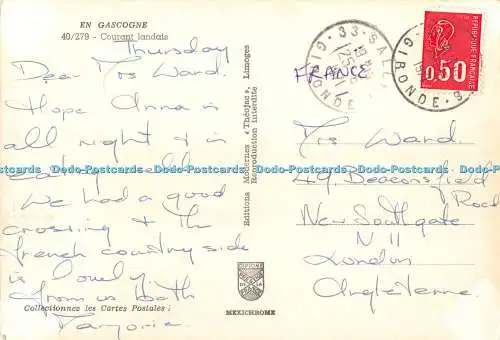 EN GASCOGNE
40/279 - Courant landais
Thursday
Dear Mrs Ward.
Hope Anna is
all right & is
eating well.
We had a good
crossing & the
french country side
is lovely.
from us both
Marjorie.
Collectionnez les Cartes Postales :
Editions Modernes « Théojac », Limoges
Reproduction interdite
MEXICHROME
FRANCE
33 - SALL
GIRONDE
GIRONDE
REPUBLIQUE FRANÇAISE
0,50
Mrs Ward.
49, Beaconsfield
Road
New Southgate
N 11
London
Angleterre.
Dodo-Postcards Dodo-Postcards Dodo-Postcards Dodo-Postcards Dodo-Postcards Dodo-Postcards